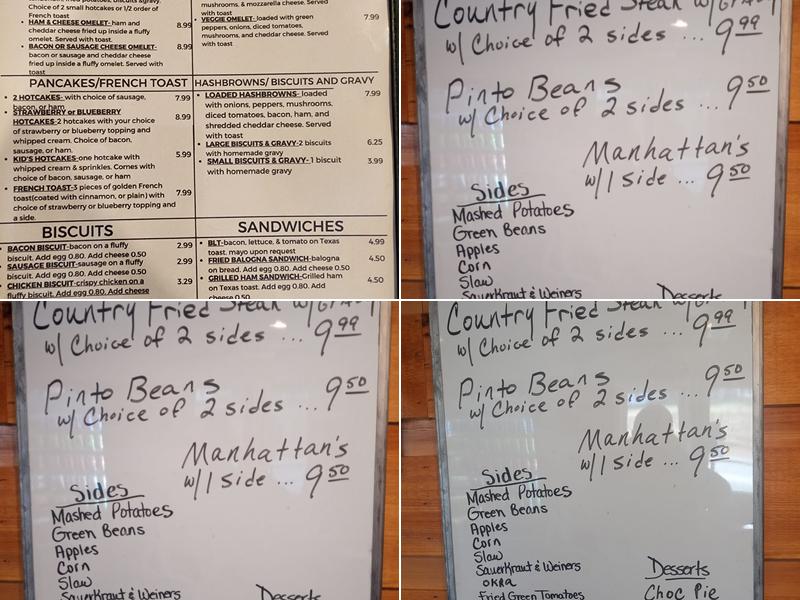 mushrooms, & mozzarella cheese. Served
with toast
Choice of 2 small hotcakes or 1/2 order of
French toast
HAM & CHEESE OMELET- ham and
cheddar cheese fried up inside a fluffy
omelet. Served with toast.
8.99
BACON OR SAUSAGE CHEESE OMELET-
bacon or sausage and cheddar cheese
fried up inside a fluffy omelet. Served with
toast
8.99
VEGGIE OMELET- loaded with green
peppers, onions, diced tomatoes,
mushrooms, and cheddar cheese. Served
with toast
7.99
PANCAKES/FRENCH TOAST
2 HOTCAKES- with choice of sausage,
bacon, or ham
7.99
STRAWBERRY or BLUEBERRY
HOTCAKES-2 hotcakes with your choice
of strawberry or blueberry topping and
whipped cream. Choice of bacon,
sausage, or ham.
8.99
KID'S HOTCAKES-one hotcake with
whipped cream & sprinkles. Comes with
choice of bacon, sausage, or ham
5.99
FRENCH TOAST-3 pieces of golden French
toast(coated with cinnamon, or plain) with
choice of strawberry or blueberry topping and
a side.
7.99
HASHBROWNS/ BISCUITS AND GRAVY
LOADED HASHBROWNS- loaded
with onions, peppers, mushrooms,
diced tomatoes, bacon, ham, and
shredded cheddar cheese. Served
with toast
7.99
LARGE BISCUITS & GRAVY-2 biscuits
with homemade gravy
6.25
SMALL BISCUITS & GRAVY- 1 biscuit
with homemade gravy
3.99
BISCUITS
BACON BISCUIT-bacon on a fluffy
biscuit. Add egg 0.80. Add cheese 0.50
2.99
SAUSAGE BISCUIT-sausage on a fluffy
biscuit. Add egg 0.80. Add cheese 0.50
2.99
CHICKEN BISCUIT-crispy chicken on a
fluffy biscuit. Add egg 0.80. Add cheese
3.29
SANDWICHES
BLT-bacon, lettuce, & tomato on Texas
toast. mayo upon request
4.99
FRIED BALOGNA SANDWICH-balogna
on bread. Add egg 0.80. Add cheese 0.50
4.50
GRILLED HAM SANDWICH-Grilled ham
on Texas toast. Add egg 0.80. Add
cheese 0.50
4.50
Country Fried Steak w/Gravy
w/ Choice of 2 sides ... 9.99
Pinto Beans
w/ Choice of 2 sides ... 9.50
Manhattan's
w/1 side ... 9.50
Sides
Mashed Potatoes
Green Beans
Apples
Corn
Slaw
SauerKraut & Weiners
Desserts
Country Fried Steak w/Gravy
w/ Choice of 2 sides ... 9.99
Pinto Beans
w/ Choice of 2 sides ... 9.50
Manhattan's
w/1 side ... 9.50
Sides
Mashed Potatoes
Green Beans
Apples
Corn
Slaw
SauerKraut & Weiners
Desserts
Country Fried Steak
w/ Choice of 2 sides ... 9.99
Pinto Beans
w/ Choice of 2 sides ... 9.50
Manhattan's
w/1 side ... 9.50
Sides
Mashed Potatoes
Green Beans
Apples
Corn
Slaw
SauerKraut & Weiners
OKRA
Fried Green Tomatoes
Desserts
Choc Pie